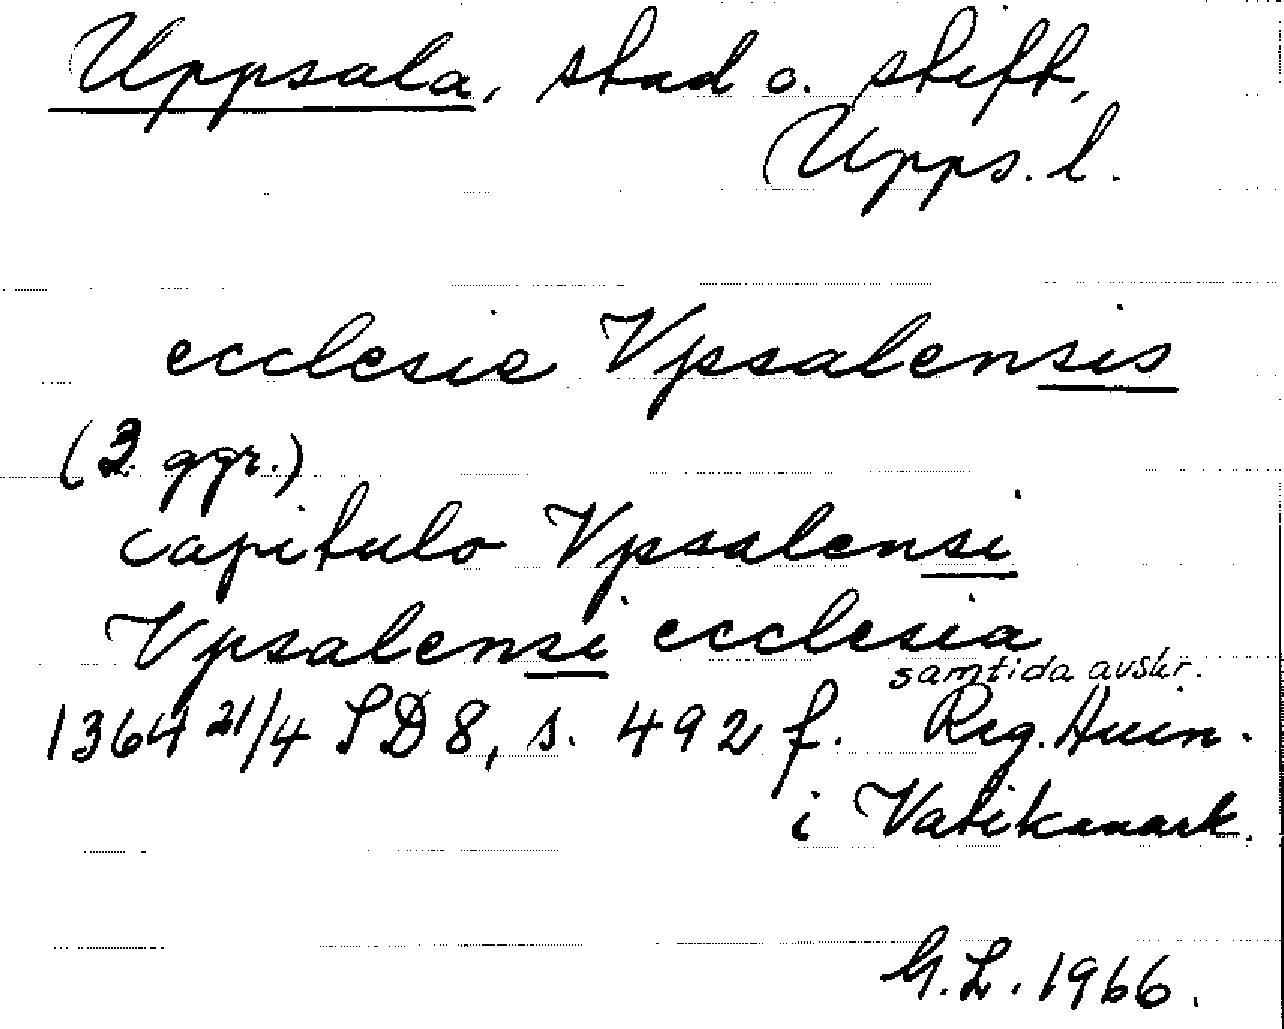 Uppsala, stad o. stift,
Upps. l.
ecclesie Vpsalensis
(3 ggr.)
capitulo Vpsalensi
Vpsalensi ecclesia
samtida avskr.
1364 21/4 SD 8, s. 492 f. Reg. Auin.
i Vatikanark.
G.L. 1966.